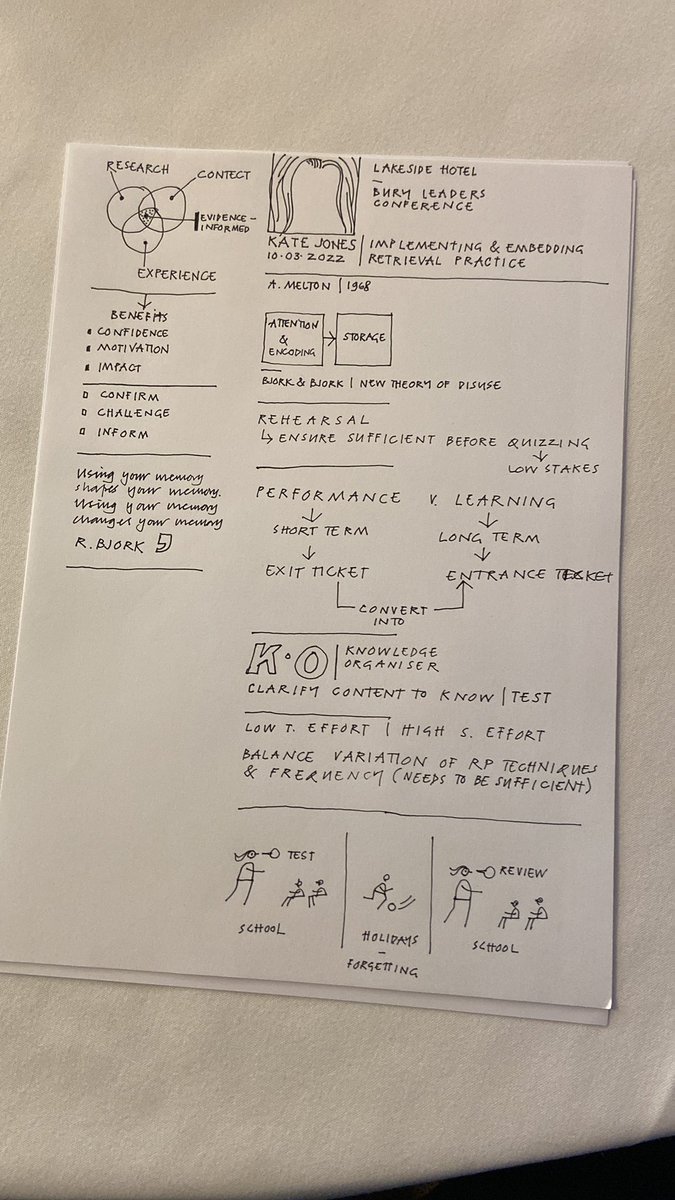 RESEARCH
CONTECT
EVIDENCE-
INFORMED
EXPERIENCE
BENEFITS
CONFIDENCE
MOTIVATION
IMPACT
CONFIRM
CHALLENGE
INFORM
Using your memory
shapes your memory.
Using your memory
changes your memory
R. BJORK
LAKESIDE HOTEL
BURY LEADERS
CONFERENCE
KATE JONES | IMPLEMENTING & EMBEDDING
10.03.2022 | RETRIEVAL PRACTICE
A. MELTON | 1968
ATTENTION
&
ENCODING
STORAGE
BJORK & BJORK | NEW THEORY OF DISUSE
REHEARSAL
↳ ENSURE SUFFICIENT BEFORE QUIZZING
LOW STAKES
PERFORMANCE V. LEARNING
SHORT TERM
LONG TERM
EXIT TICKET
ENTRANCE TICKET
CONVERT
INTO
K.O | KNOWLEDGE
ORGANISER
CLARIFY CONTENT TO KNOW | TEST
LOW T. EFFORT | HIGH S. EFFORT
BALANCE VARIATION OF RP TECHNIQUES
& FREQUENCY (NEEDS TO BE SUFFICIENT)
TEST
SCHOOL
HOLIDAYS
-
FORGETTING
REVIEW
SCHOOL